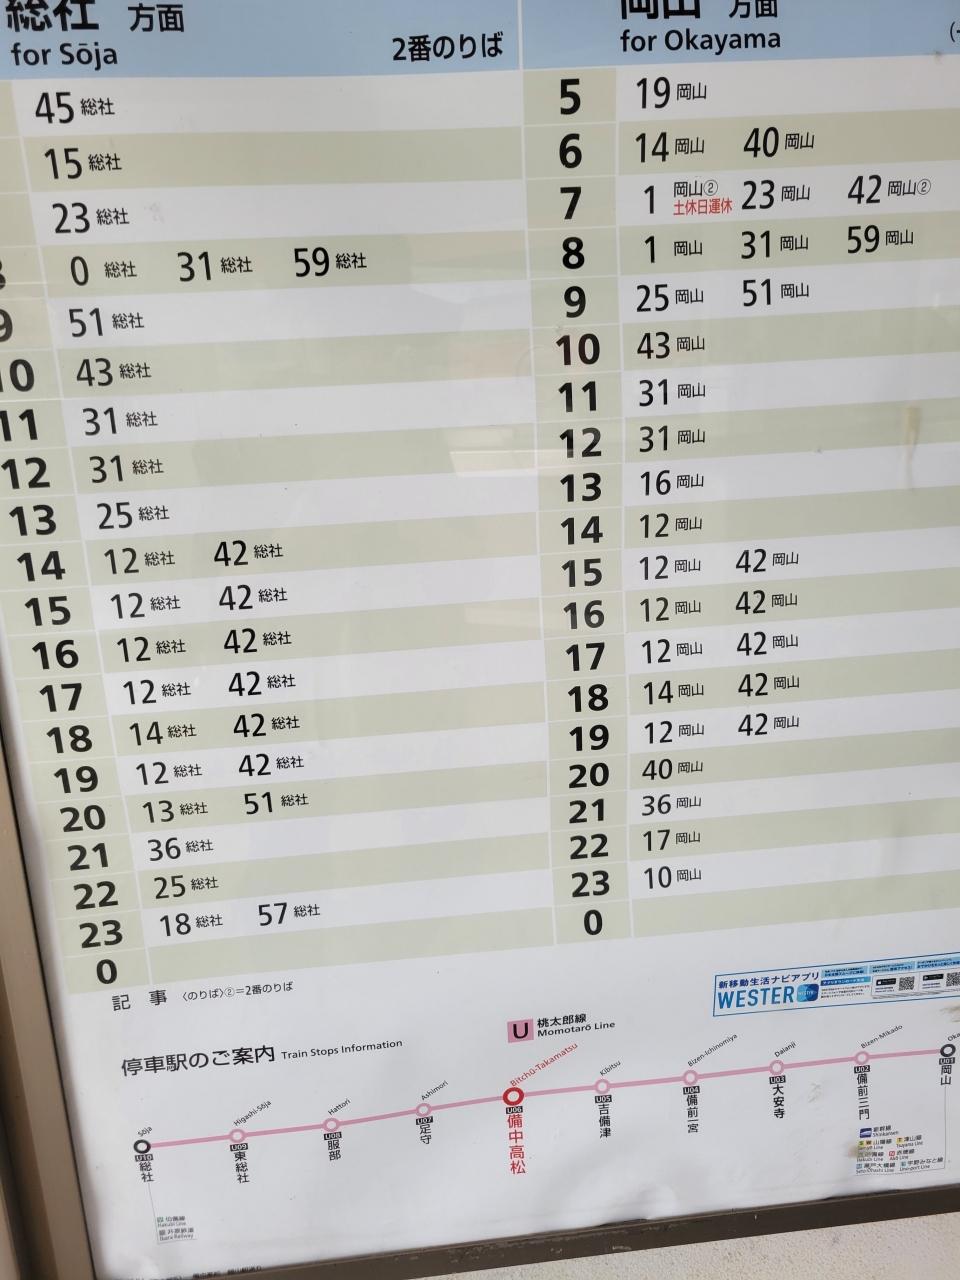 総社 方面
for Sōja 2番のりば
45 総社
15 総社
23 総社
0 総社 31 総社 59 総社
9 51 総社
10 43 総社
11 31 総社
12 31 総社
13 25 総社
14 12 総社 42 総社
15 12 総社 42 総社
16 12 総社 42 総社
17 12 総社 42 総社
18 14 総社 42 総社
19 12 総社 42 総社
20 13 総社 51 総社
21 36 総社
22 25 総社
23 18 総社 57 総社
0
岡山 方面
for Okayama
5 19 岡山
6 14 岡山 40 岡山
7 1 岡山② 土休日運休 23 岡山 42 岡山②
8 1 岡山 31 岡山 59 岡山
9 25 岡山 51 岡山
10 43 岡山
11 31 岡山
12 31 岡山
13 16 岡山
14 12 岡山
15 12 岡山 42 岡山
16 12 岡山 42 岡山
17 12 岡山 42 岡山
18 14 岡山 42 岡山
19 12 岡山 42 岡山
20 40 岡山
21 36 岡山
22 17 岡山
23 10 岡山
0
記 事 〈のりば〉②=2番のりば
新移動生活ナビアプリ
WESTER
U 桃太郎線
Momotarō Line
停車駅のご案内 Train Stops Information
Sōja U10 総社
Higashi-Sōja U09 東総社
Hattori U08 服部
Ashimori U07 足守
Bitchū-Takamatsu U06 備中高松
Kibitsu U05 吉備津
Bizen-Ichinomiya U04 備前一宮
Daianji U03 大安寺
Bizen-Mikado U02 備前三門
Oka U01 岡山
伯備線
Hakubi Line
井原鉄道
Ibara Railway
新幹線
Shinkansen
山陽線
津山線
Tsuyama Line
赤穂線
Akō Line
瀬戸大橋線
宇野みなと線